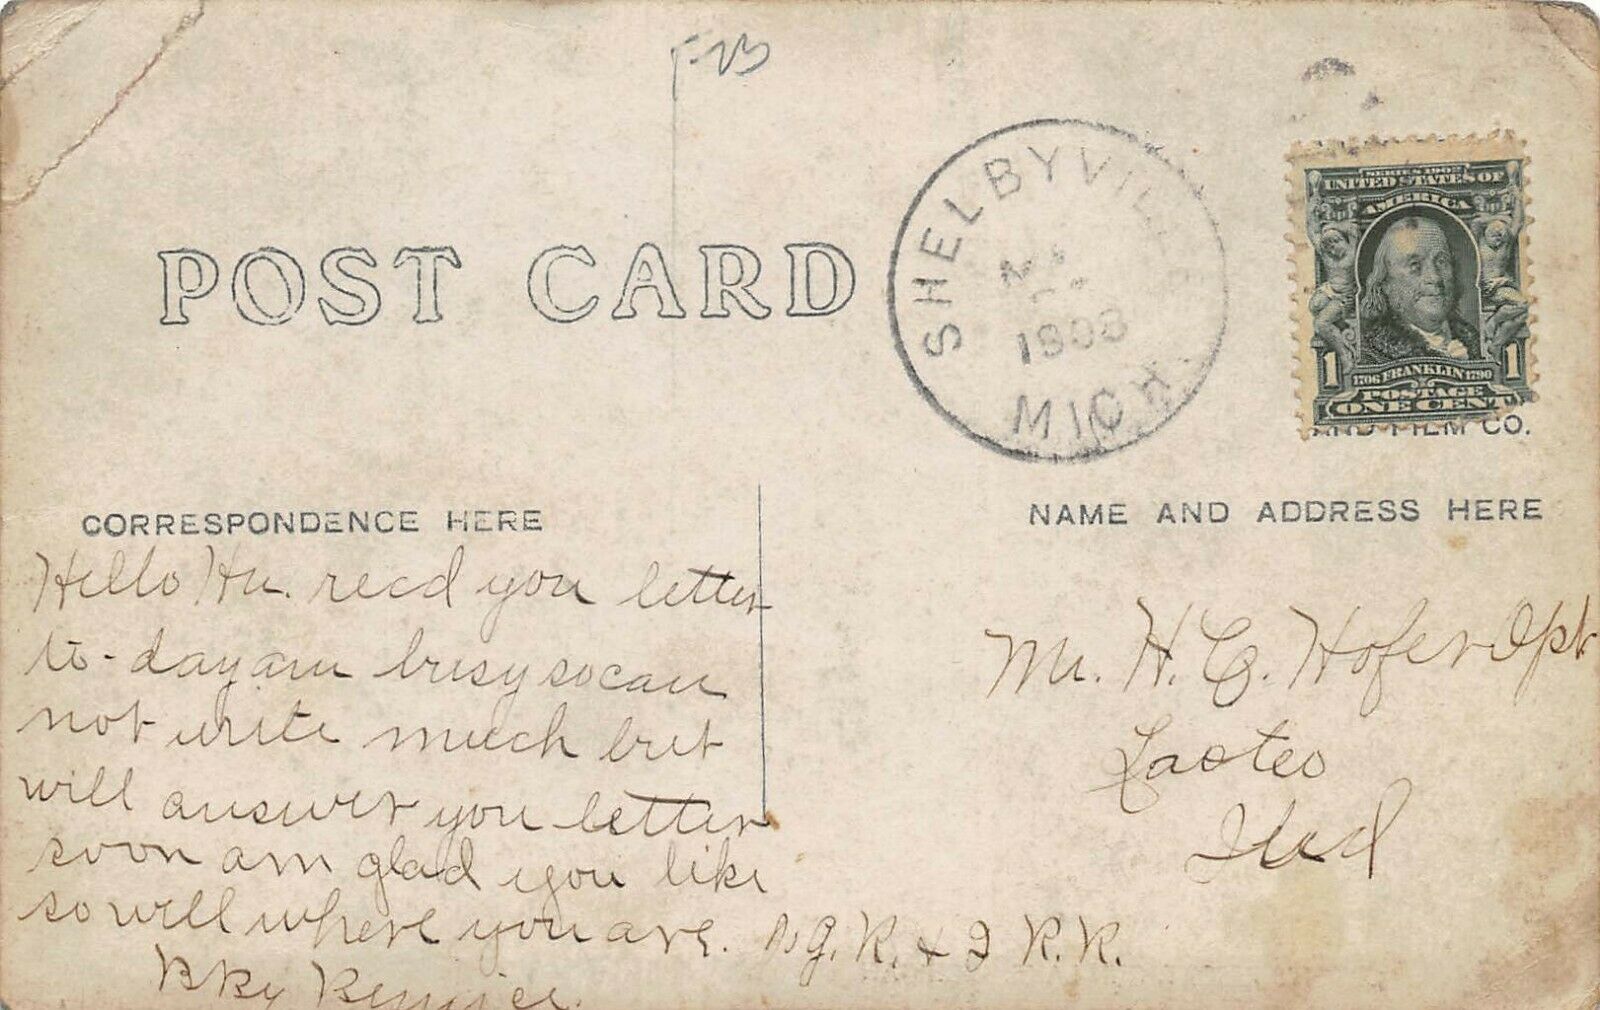 POST CARD
SHELBYVILLE
1908
MICH
SERIES 1902
UNITED STATES OF
AMERICA
1 1
1706 FRANKLIN 1790
POSTAGE
ONE CENT
AND FILM CO.
CORRESPONDENCE HERE
NAME AND ADDRESS HERE
Hello Hu. recd you letter
to-day am busy so can
not write much but
will answer you letter
soon am glad you like
so will where you are.
G. R. & I R.R.
Mr. H. C. Hofer Opt
Ind